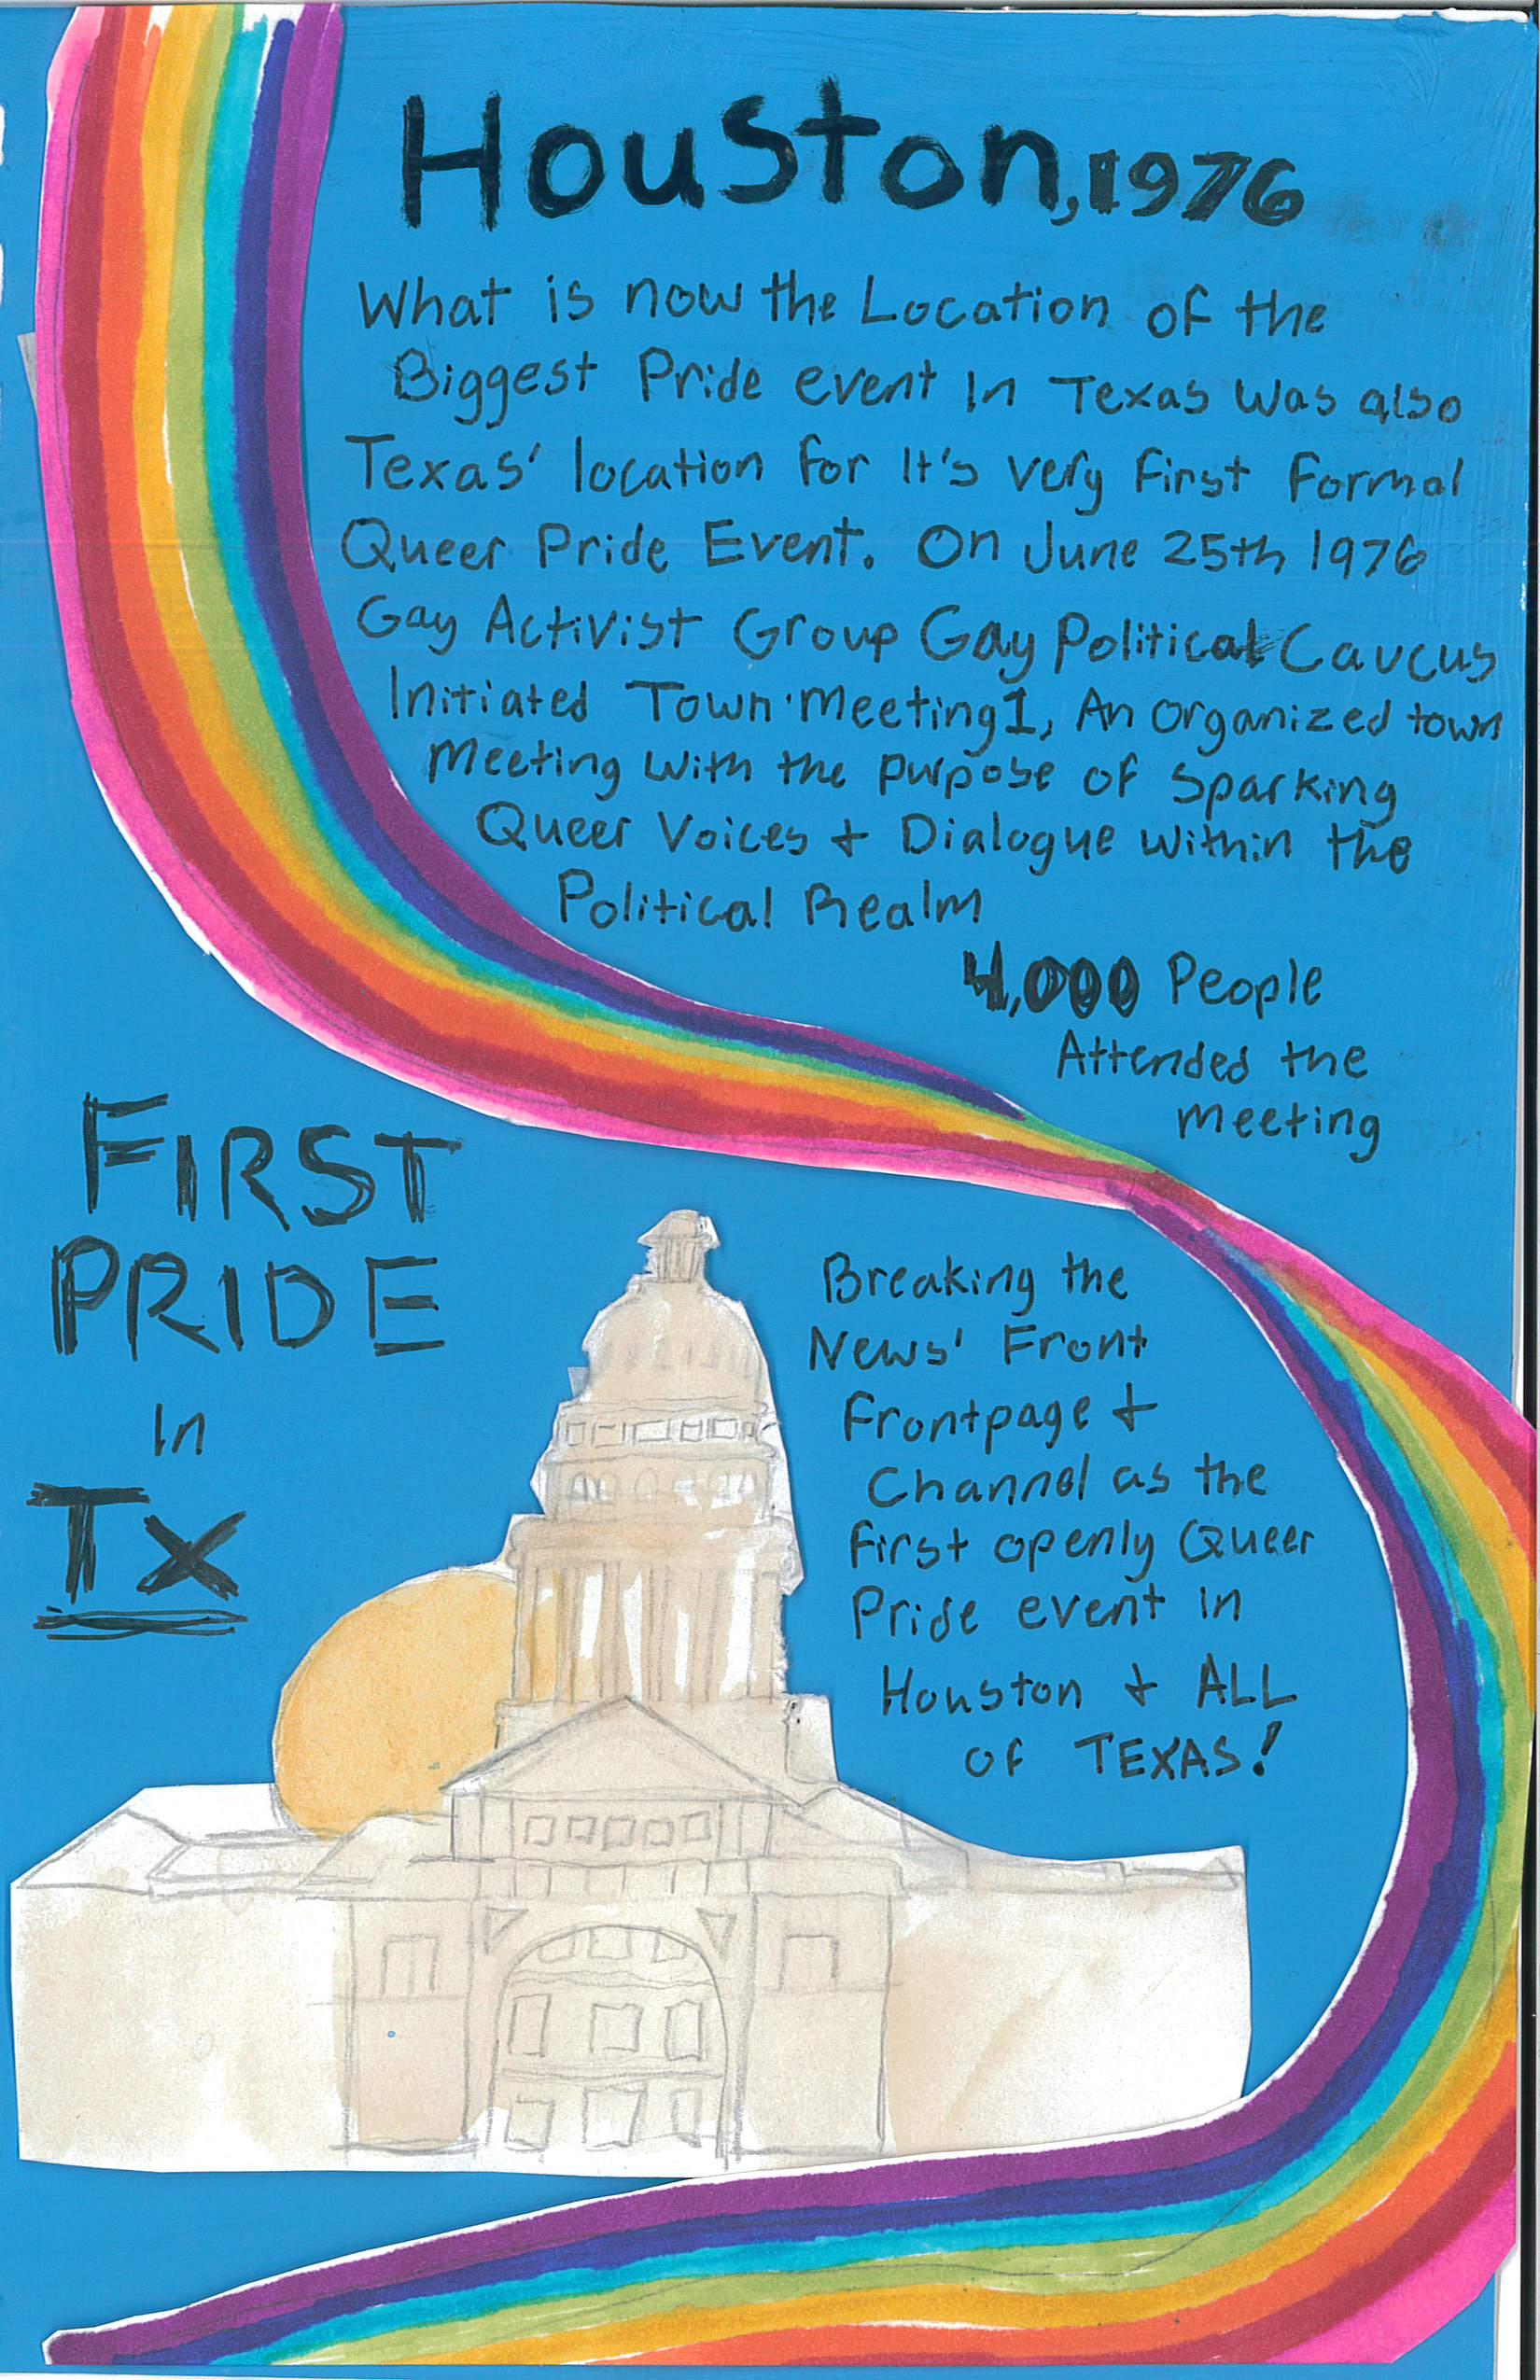 Houston, 1976
What is now the Location of the
Biggest Pride event In Texas Was also
Texas' location for It's very First Formal
Queer Pride Event. On June 25th 1976
Gay Activist Group Gay Political Caucus
Initiated Town Meeting1, An Organized town
Meeting With the purpose of Sparking
Queer Voices + Dialogue within the
Political Realm
4,000 People
Attended the
Meeting
FIRST
PRIDE
In
Tx
Breaking the
News' Front
Frontpage +
Channel as the
First openly Queer
Pride event in
Houston + ALL
OF TEXAS!